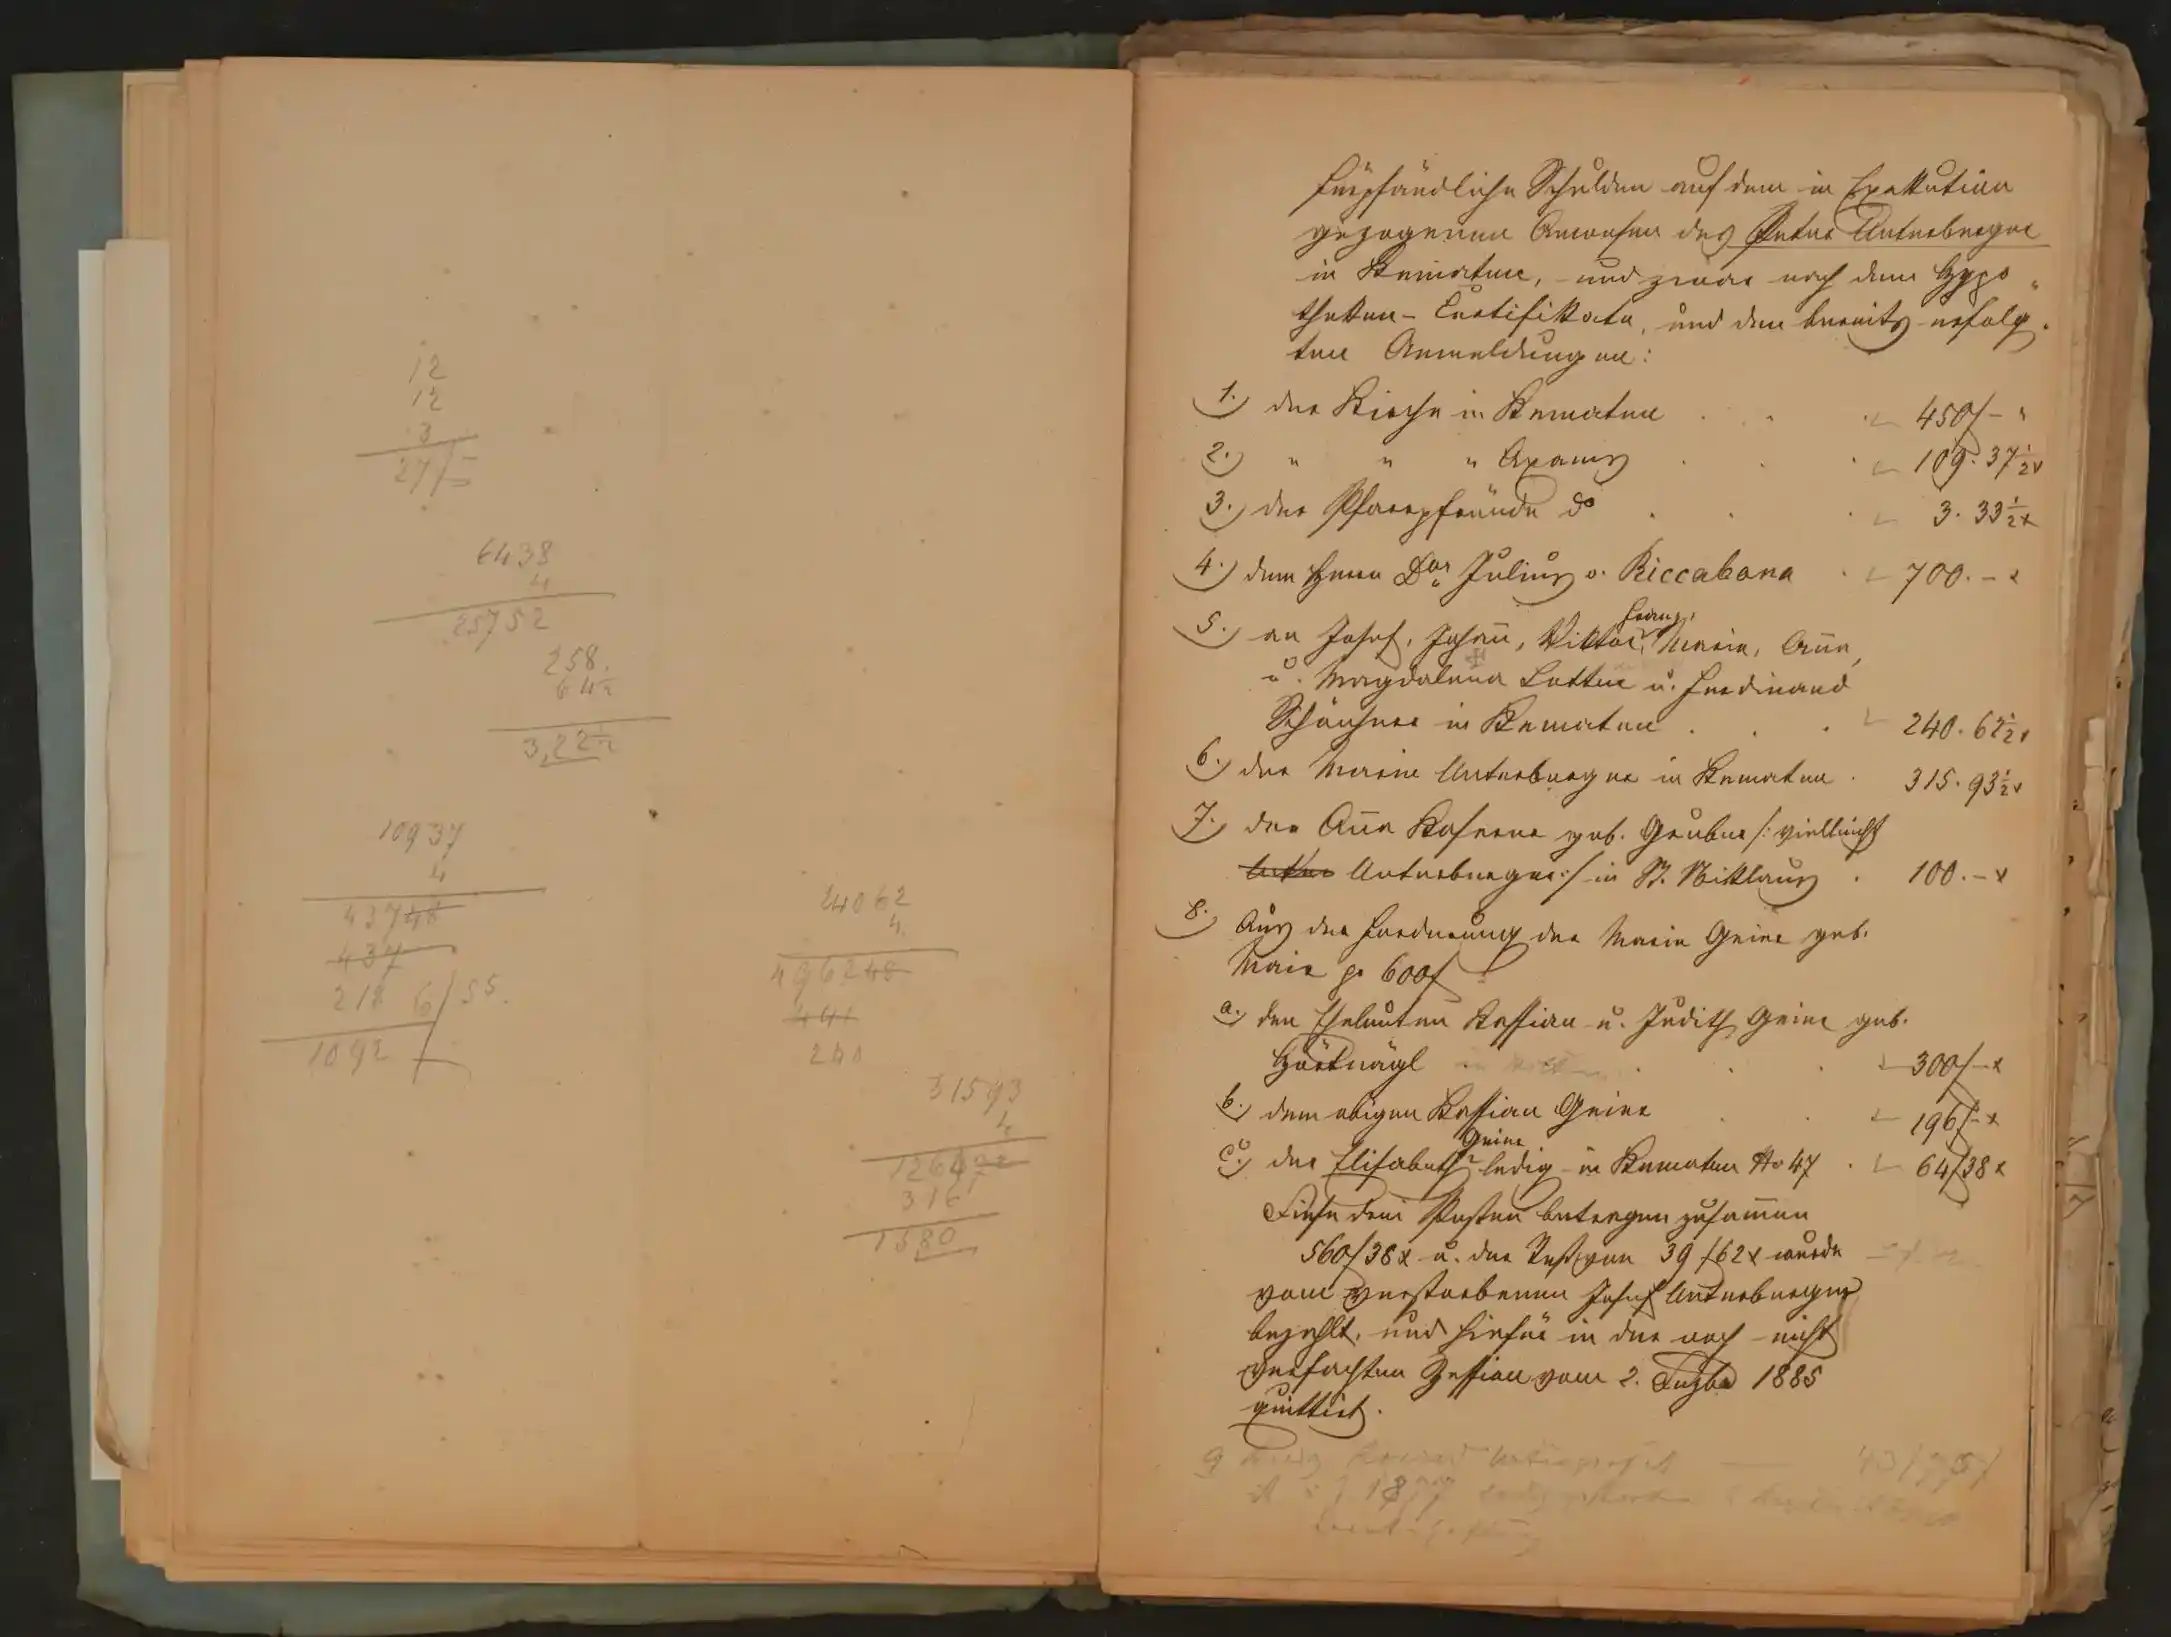 12
12
3
27/–
6438
4
25752
258.
64½
3,22½
10937
4
43748
437
218 6/55.
1092
24062
4.
496248
441
240
31593
4
126
316
1580
fürpfändliche Schulden auf dem in Exekution
gezogenen Anwesen des Peter Unterberger
in Kematen, und zwar nach dem Hypo„
theken-Certifikate, und den bereits erfolg„
ten Anmeldungen:
1.) der Kirche in Kematen 450f –"
2.) " " " Axams 109. 37½x
3.) der Pfarrpfründe do 3. 33½x
4.) dem Herrn Dor Julius v. Riccabona 700. – x
Franz,
5.) an Josef, Johañ, Viktor, Maria, Aña,
u. Magdalena Latten u. Ferdinand
in Kematen 240. 62½x
6.) der Maria Unterberger in Kematen 315. 93½x
7.) der Aña geb. Gruber /: vielleicht
Unterberger :/ in St. Niklaus 100. – x
8.) Aus der Forderung der Maria Geier geb.
Mair pr 600f
a.) den Eheleuten Kassian u. Judith Geier geb.
Hörtnagl 300f – x
b.) dem obigen Kassian Geier 196f – x
Geier
c.) der Elisabeth ledig in Kematen No 47 64f 38x
Diese drei Posten betragen zusam̄en
560f 38x u. der Rest von 39f 62x wurde
vom verstorbenen Josef Unterberger
bezahlt, und hiefür in der noch nicht
verfachten Zession vom 2. Dezbr 1885
quittirt.
9
1877